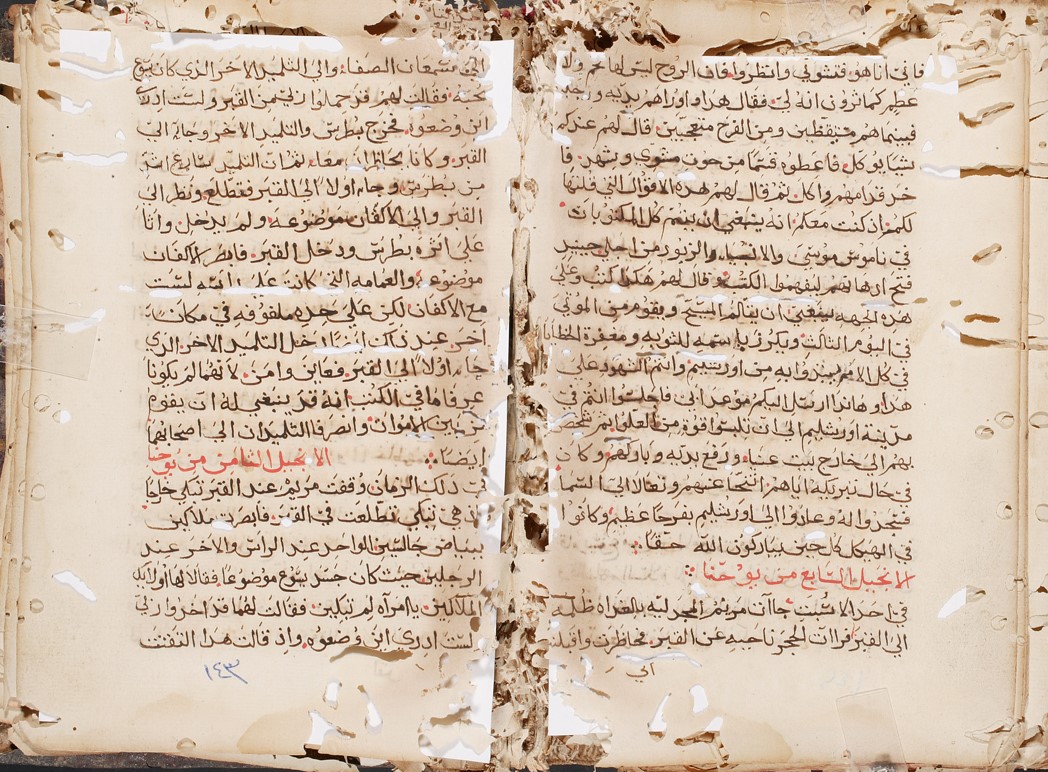 فاني انا هو فتشوني وانظروا فان الروح ليس لها لحم ولا
عظم كما ترون انه لي فقال هدا واوراهم يديه ورجليه
فبينما هم متيقظين ومن الفرح متعجبين قال لهم عندكم
شيا يوكل فاعطوه قسما من حوت مشوي وشهد
قدامهم واكل ثم قال لهم هده الاقوال التي قلتها
لكم اد كنت معكم انه ينبغي ان يتم كل المكتوبات
في ناموس موسى والانبياء والزبور من اجلي حينيد
فتح ادهانهم ليفهموا الكتب وقال لهم هكدا كتب وعلي
هده الجهه ينبغي ان يتالم المسيح ويقوم من الموتي
في اليوم الثالث ويكرز باسمه للتوبه ومغفرة الخطايا
في كل الامم يبدوا به من اورشليم وانتم الشهود علي
هدا وهاندا ارسل اليكم موعد ابي فاجلسوا انتم في
مدينة اورشليم الي ان تلبسوا قوة من العلو ثم شخص
بهم الي خارج بيت عنيا ورفع يديه وباركهم وكان
في حال تبريكه اياهم انتحا عنهم وتعالا الي السما
فسجدوا له وعادوا الي اورشليم بفرحا عظيم وكانوا
في الهيكل كل حين يباركون الله حقا
الانجيل السابع من يوحنا
في احد الاسبت جاات مريم المجدليه بالغداه ظلمه
الي القبر فرات الحجر ناحيه عن القبر فحاظرت واقبلت
الي
الي سمعان الصفا والي التلميد الاخر الدي كان يسوع
يحبه فقالت لهم قد حملوا ربي من القبر ولست ادري
اين وضعوه فخرج بطرس والتلميد الاخر وجا الي
القبر وكانا يحاظران معا ثم ان التلميد سابع
من بطرس وجا اولا الي القبر فتطلع ونظر الي
القبر والي الاكفان موضوعه ولم يدخل واتا
علي اثره بطرس ودخل القبر فابصر الاكفان
موضوعه والعمامه التي كانت علي راسه ليست
مع الاكفان لكن علي حده ملفوفه في مكان
اخر عند دلك ايضا دخل التلميد الاخر الدي
جا اولا الي القبر فعاين وامن لانهما لم يكونا
عرفا ما في الكتب انه قد ينبغي له ان يقوم
من بين الاموات وانصرفا التلميدان الي اصحابهما
ايضا الانجيل الثامن من يوحنا
في دلك الزمان وقفت مريم عند القبر تبكي خارجا
واد هي تبكي تطلعت في القبر فابصرت ملاكين
ببياض جالسين الواحد عند الراس والاخر عند
الرجلين حيث كان جسد يسوع موضوعا فقالا لها اولايك
الملاكين يا امراه لم تبكين فقالت لهما قد اخدوا ربي
ولست ادري اين وضعوه واد قالت هدا التفتت
١٤٣